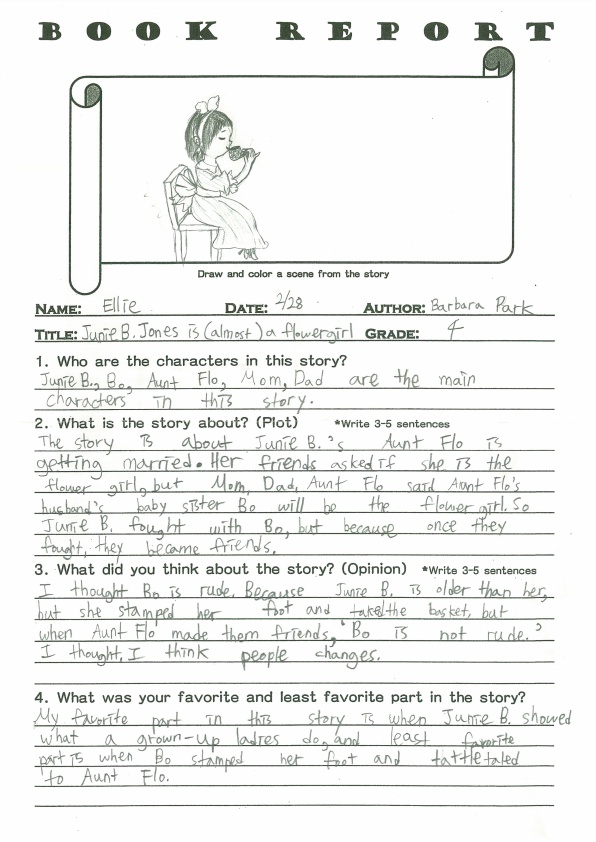 BOOK REPORT
Draw and color a scene from the story
NAME: Ellie DATE: 2/28 AUTHOR: Barbara Park
TITLE: Junie B. Jones is (almost) a flowergirl GRADE: 4
1. Who are the characters in this story?
Junie B., Bo, Aunt Flo, Mom, Dad are the main
characters in this story.
2. What is the story about? (Plot) *Write 3-5 sentences
The story is about Junie B.'s Aunt Flo is
getting married. Her friends asked if she is the
flower girl, but Mom, Dad, Aunt Flo said Aunt Flo's
husband's baby sister Bo will be the flower girl. So
Junie B. fought with Bo, but because once they
fought, they became friends.
3. What did you think about the story? (Opinion) *Write 3-5 sentences
I thought Bo is rude. Because Junie B. is older than her,
but she stamped her foot and taked the basket, but
when Aunt Flo made them friends, 'Bo is not rude.'
I thought, I think people changes.
4. What was your favorite and least favorite part in the story?
My favorite part in this story is when Junie B. showed
what a grown-up ladies do, and least favorite
part is when Bo stamped her foot and tattletaled
to Aunt Flo.